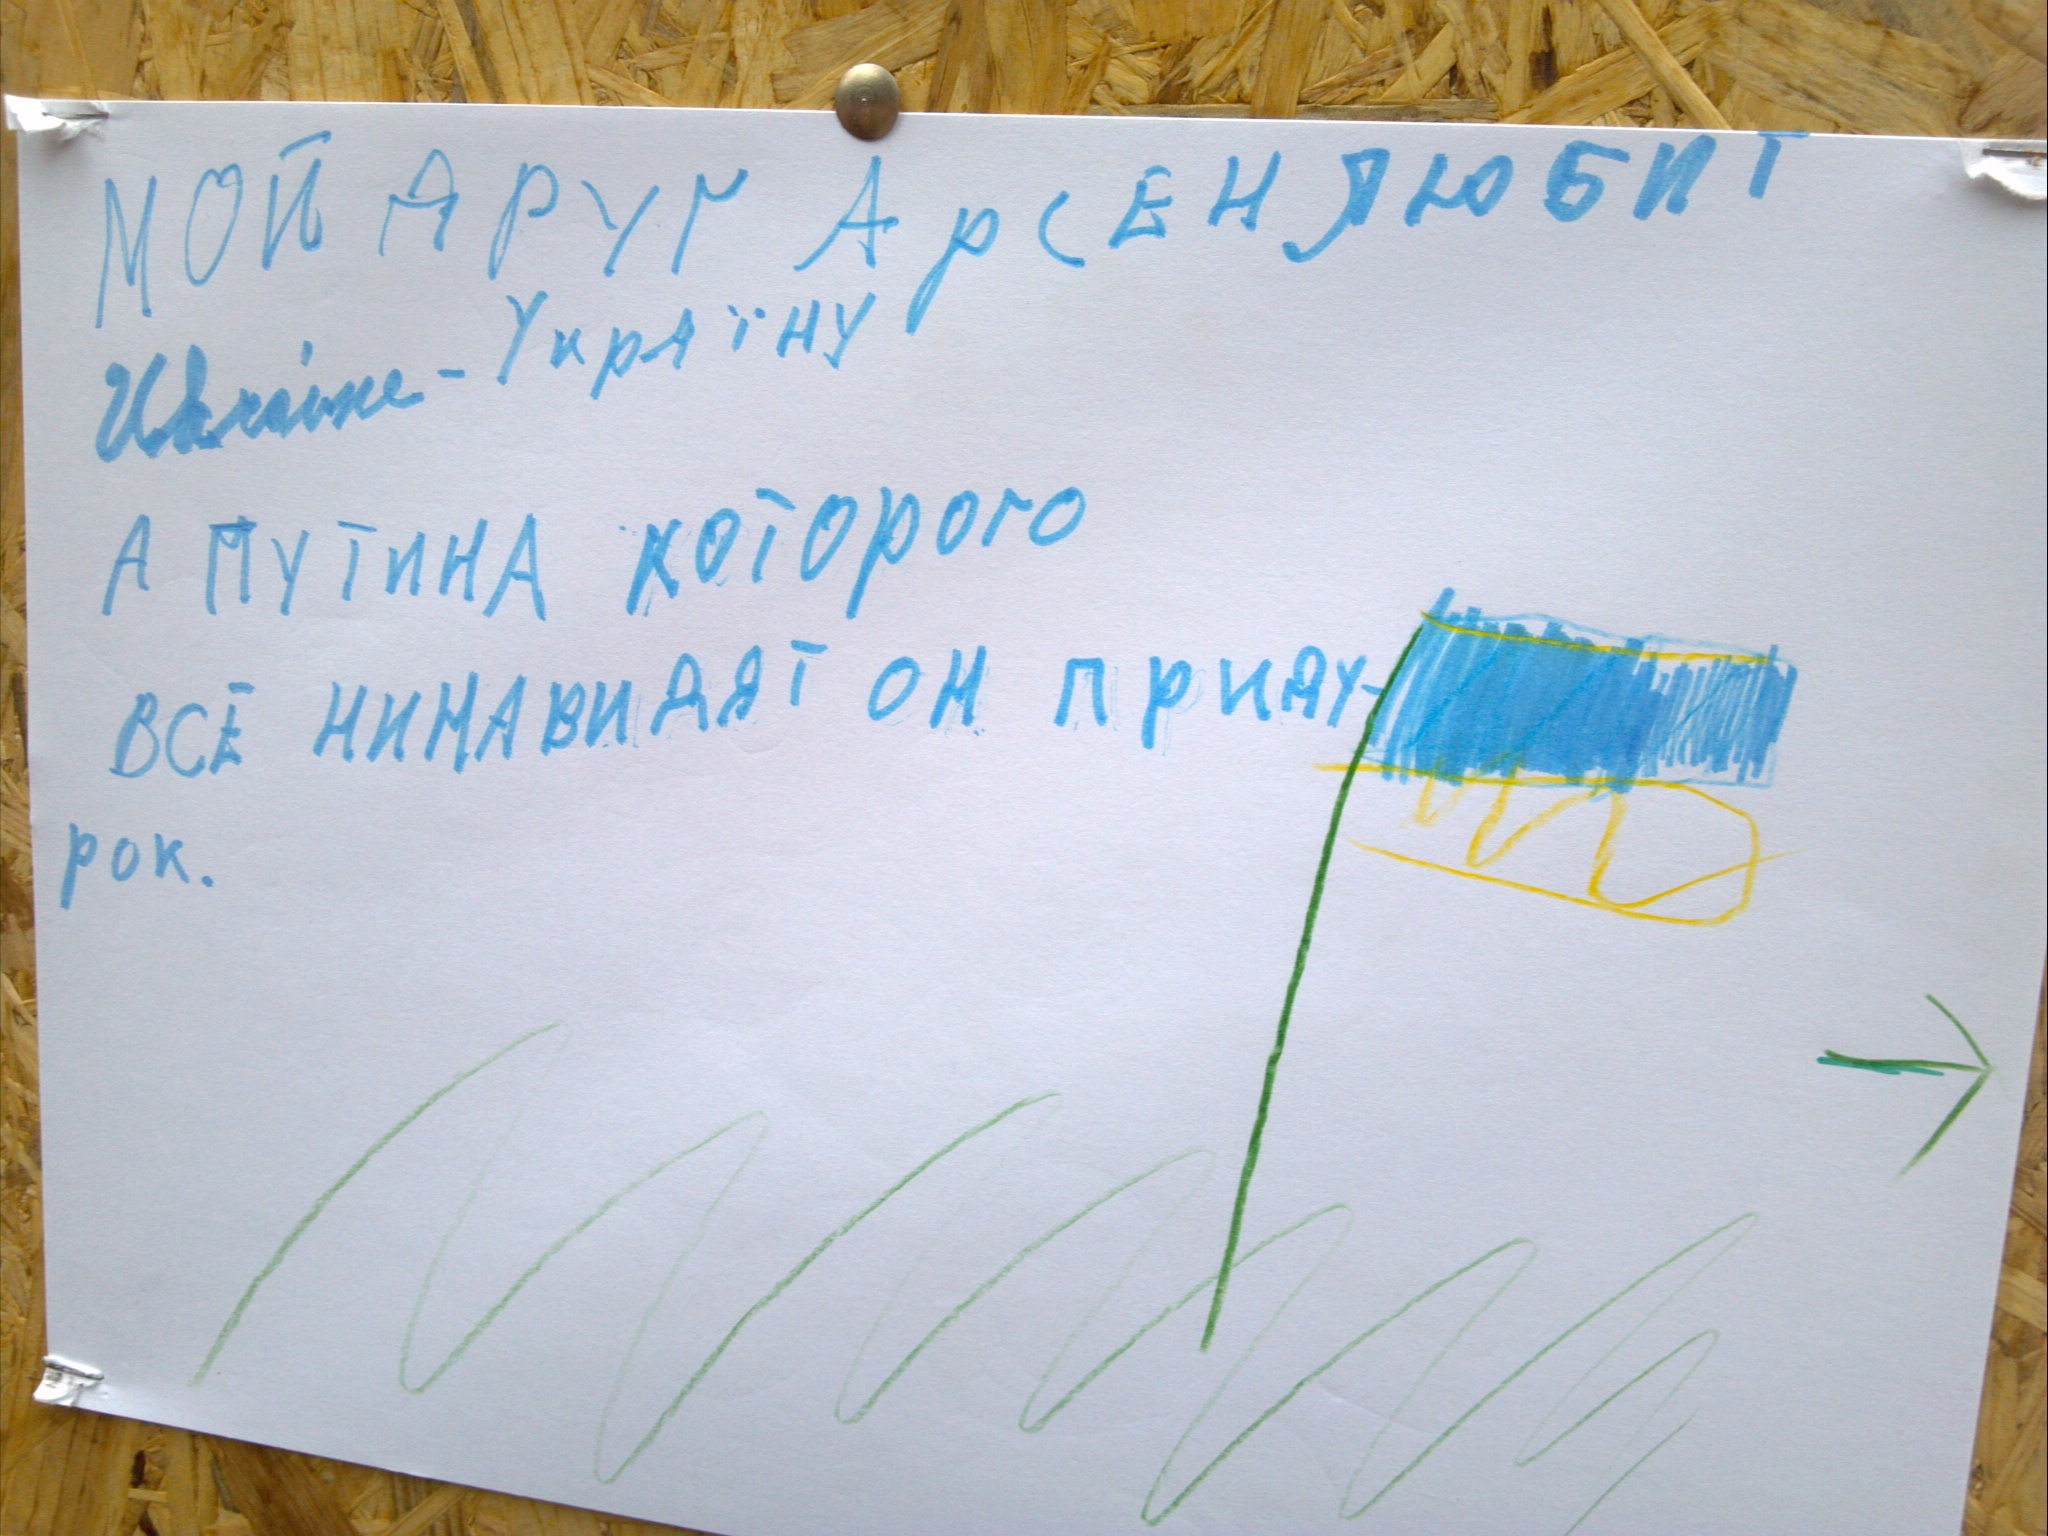 МОЙ ДРУГ АрСЕНЯ ЛЮБИТ
Ukraine - Україну
А ПУТИНА которого
ВСЕ НИНАВИДЯТ ОН ПРИДУ-
рок.